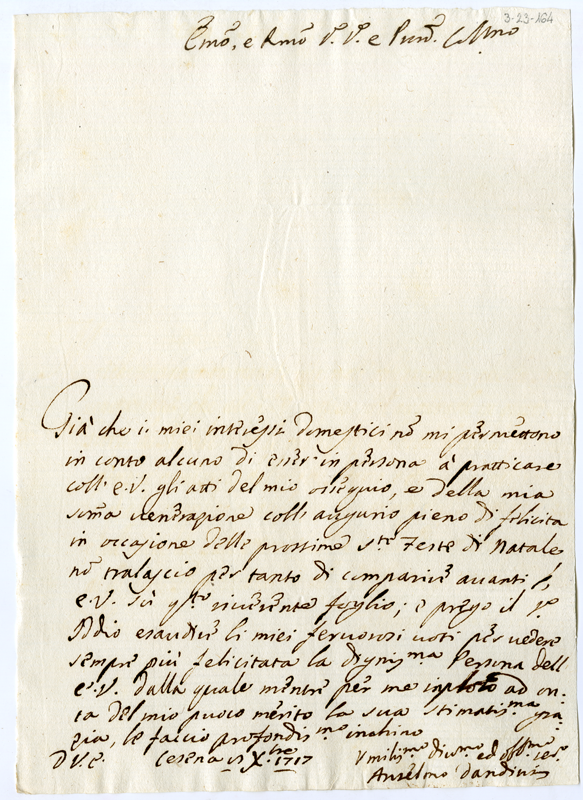 3-23-164
Emo, e Rmo Sre Sre e Pron Colmo
Già che i miei interessi domestici nō mi permettono
in conto alcuno di esser in persona à pratticare
coll' E.V. gli atti del mio ossequio, e della mia
soma uenerazione coll' augurio pieno di felicita
in occasione delle prossime Ste Feste di Natale
nō tralascio per tanto di comparire auanti l'
E.V. sù qsto riuerente foglio; e prego il Sre
Iddio esaudire li miei feruorosi uoti per uedere
sempre più felicitata la dignisma Persona dell
E.V. dalla quale mentre per me imploro ad on-
ta del mio puoco merito la sua stimatisma gra-
zia, le faccio profondismo inchino
D V. E. Cesena Xbre 1717
Vmilismo diumo ed obbmo sere
Anselmo Dandini